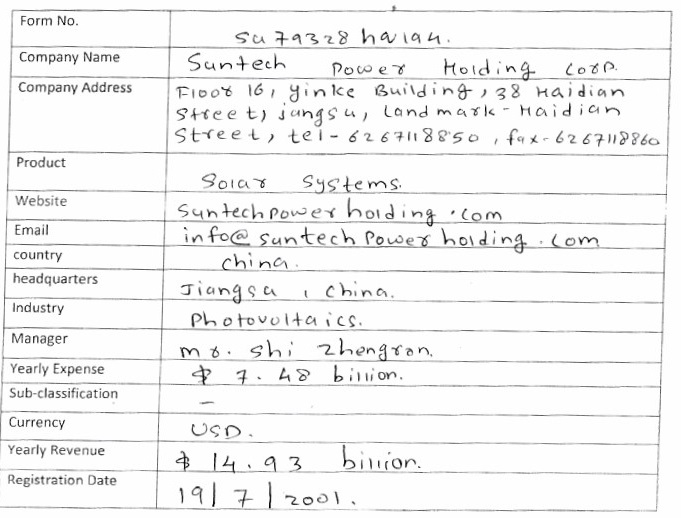 Form No. su79328halau.
Company Name Suntech Power Holding Corp.
Company Address Floor 16, yinke Building, 38 Haidian
Street, jangsu, Landmark-Haidian
Street, tel-6267118850, fax-6267118860
Product Solar Systems.
Website suntechpowerholding.com
Email info@suntechpowerholding.com
country china.
headquarters Jiangsu, China.
Industry Photovoltaics.
Manager mr. shi zhengron.
Yearly Expense $ 7.48 billion.
Sub-classification –
Currency USD.
Yearly Revenue $ 14.93 billion.
Registration Date 19/7/2001.